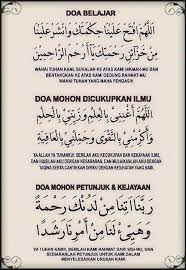 DOA BELAJAR
اللَّهُمَّ افْتَحْ عَلَيْنَا حِكْمَتَكَ وَانْشُرْ عَلَيْنَا
مِنْ خَزَائِنِ رَحْمَتِكَ يَا أَرْحَمَ الرَّاحِمِينَ
WAHAI TUHAN KAMI, BUKALAH KE ATAS KAMI HIKMAH-MU DAN
BENTANGKAN KE ATAS KAMI GEDUNG RAHMAT-MU
WAHAI TUHAN YANG MAHA PENGASIH
DOA MOHON DICUKUPKAN ILMU
اللَّهُمَّ أَغْنِنِي بِالْعِلْمِ وَزَيِّنِّي بِالْحِلْمِ
وَأَكْرِمْنِي بِالتَّقْوَى وَجَمِّلْنِي بِالْعَافِيَةِ
YA ALLAH YA TUHANKU, BERILAH AKU KECUKUPAN DAN KEKAYAAN ILMU,
DAN HIASI AKU DENGAN KESABARAN, DAN MULIAKANLAH AKU DENGAN
TAQWA SERTA CANTIKKAN DIRIKU DENGAN KESIHATAN YANG BAIK.
DOA MOHON PETUNJUK & KEJAYAAN
رَبَّنَا آتِنَا مِنْ لَدُنْكَ رَحْمَةً
وَهَيِّئْ لَنَا مِنْ أَمْرِنَا رَشَدًا
YA TUHAN KAMI, BERILAH KAMI RAHMAT DARI SISI-MU, DAN
SEDIAKANLAH PETUNJUK UNTUK KAMI DALAM
MENYELESAIKAN URUSAN KAMI.